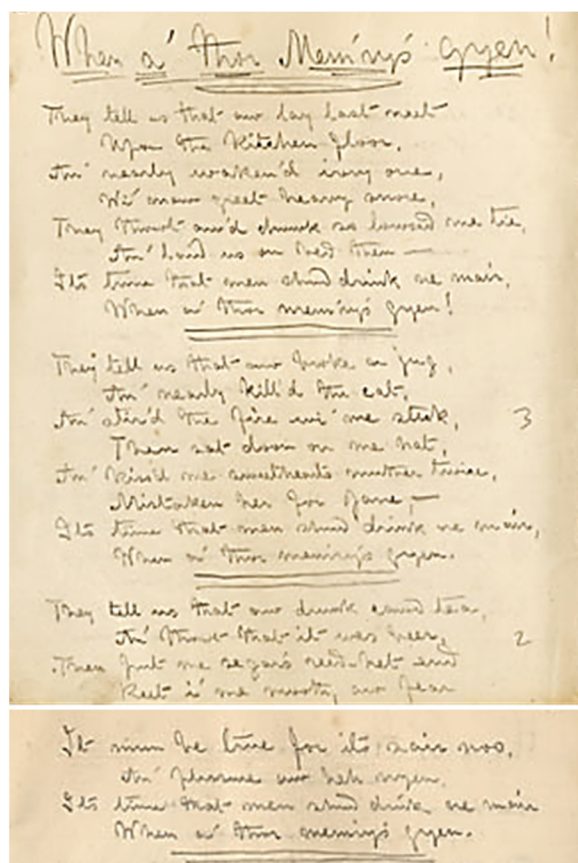 When a' thor Mem'ry's gyen!
They tell us that aw lay last neet
Upon the Kitchen floor,
An' nearly waken'd ivvry one,
Wi' maw greet heavy snore,
They thowt aw'd drunk so lowsed me tie,
An' laid us on bed then —
Its time that men shud drink ne mair,
When a' thor mem'ry's gyen!
They tell us that aw broke a jug,
An' nearly kill'd the cat,
An' stir'd the fire wi' me stick,
Then sat doon on me hat,
An' kiss'd me sweethearts muther twice,
Mistaken her for Jane, —
Its time that men shud drink ne mair,
When a' thor mem'ry's gyen.
3
They tell us that aw drunk caud tea,
An' thowt that it was beer,
Then put me segar's reed-het end
Reet i' me mouth, aw fear
2
It mun be true for its sair noo,
An' pleasure aw heh nyen,
Its time that men shud drink ne mair
When a' thor mem'ry's gyen.